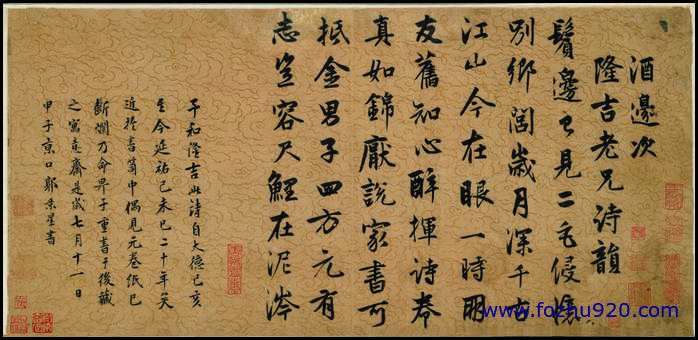 酒邊次
隆吉老兄詩韻
鬢邊已見二毛侵憶
別鄉閭歲月深千古
江山今在眼一時朋
友舊知心醉揮詩卷
真如錦厭說家書可
抵金男子四方元有
志豈容尺鯉在泥涔
予和隆吉此詩自大德己亥
至今延祐己未已二十年矣
近於書笥中偶見元卷紙已
斷爛乃命畀子重書于後藏
之寓意齋是歲七月十一日
甲子京口郭景星書
www.fozhu920.com